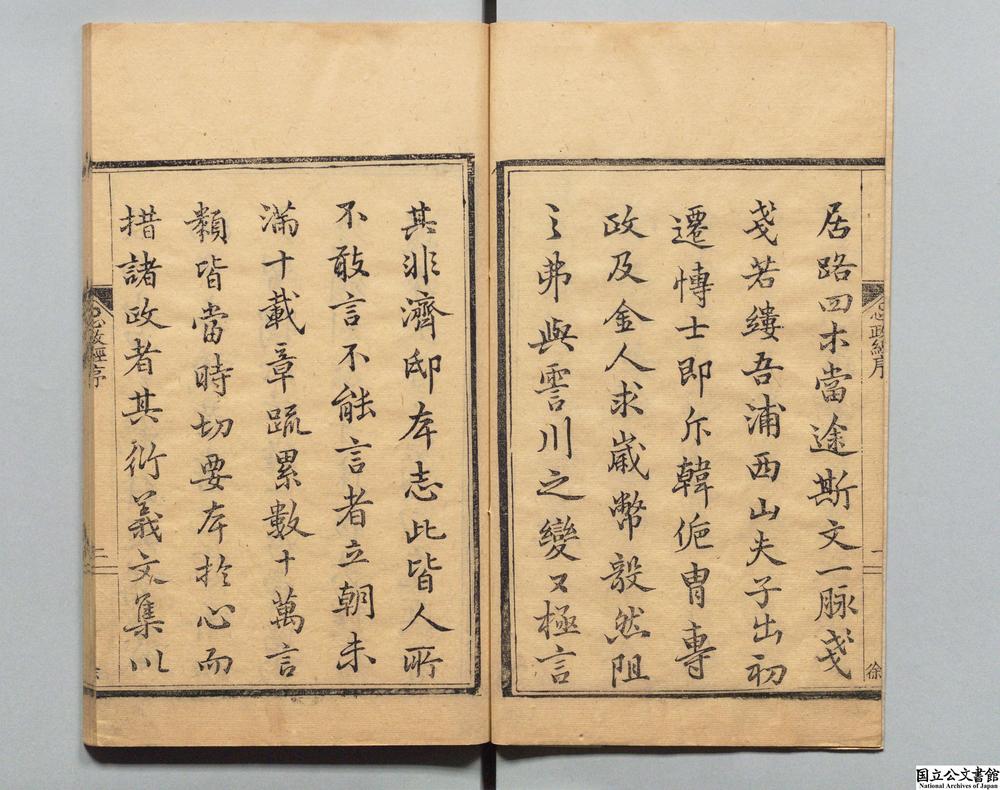 居路四木當途斯文一脉戔
戔若縷吾浦西山夫子出初
遷愽士即斥韓侂胄專
政及金人求歲幣毅然阻
之弗與霅川之變又極言
其非濟邸本志此皆人所
不敢言不能言者立朝未
滿十載章疏累數十萬言
類皆當時切要本於心而
措諸政者其衍義文集以
心政經序
一
徐
心政經序
二
国立公文書館
National Archives of Japan